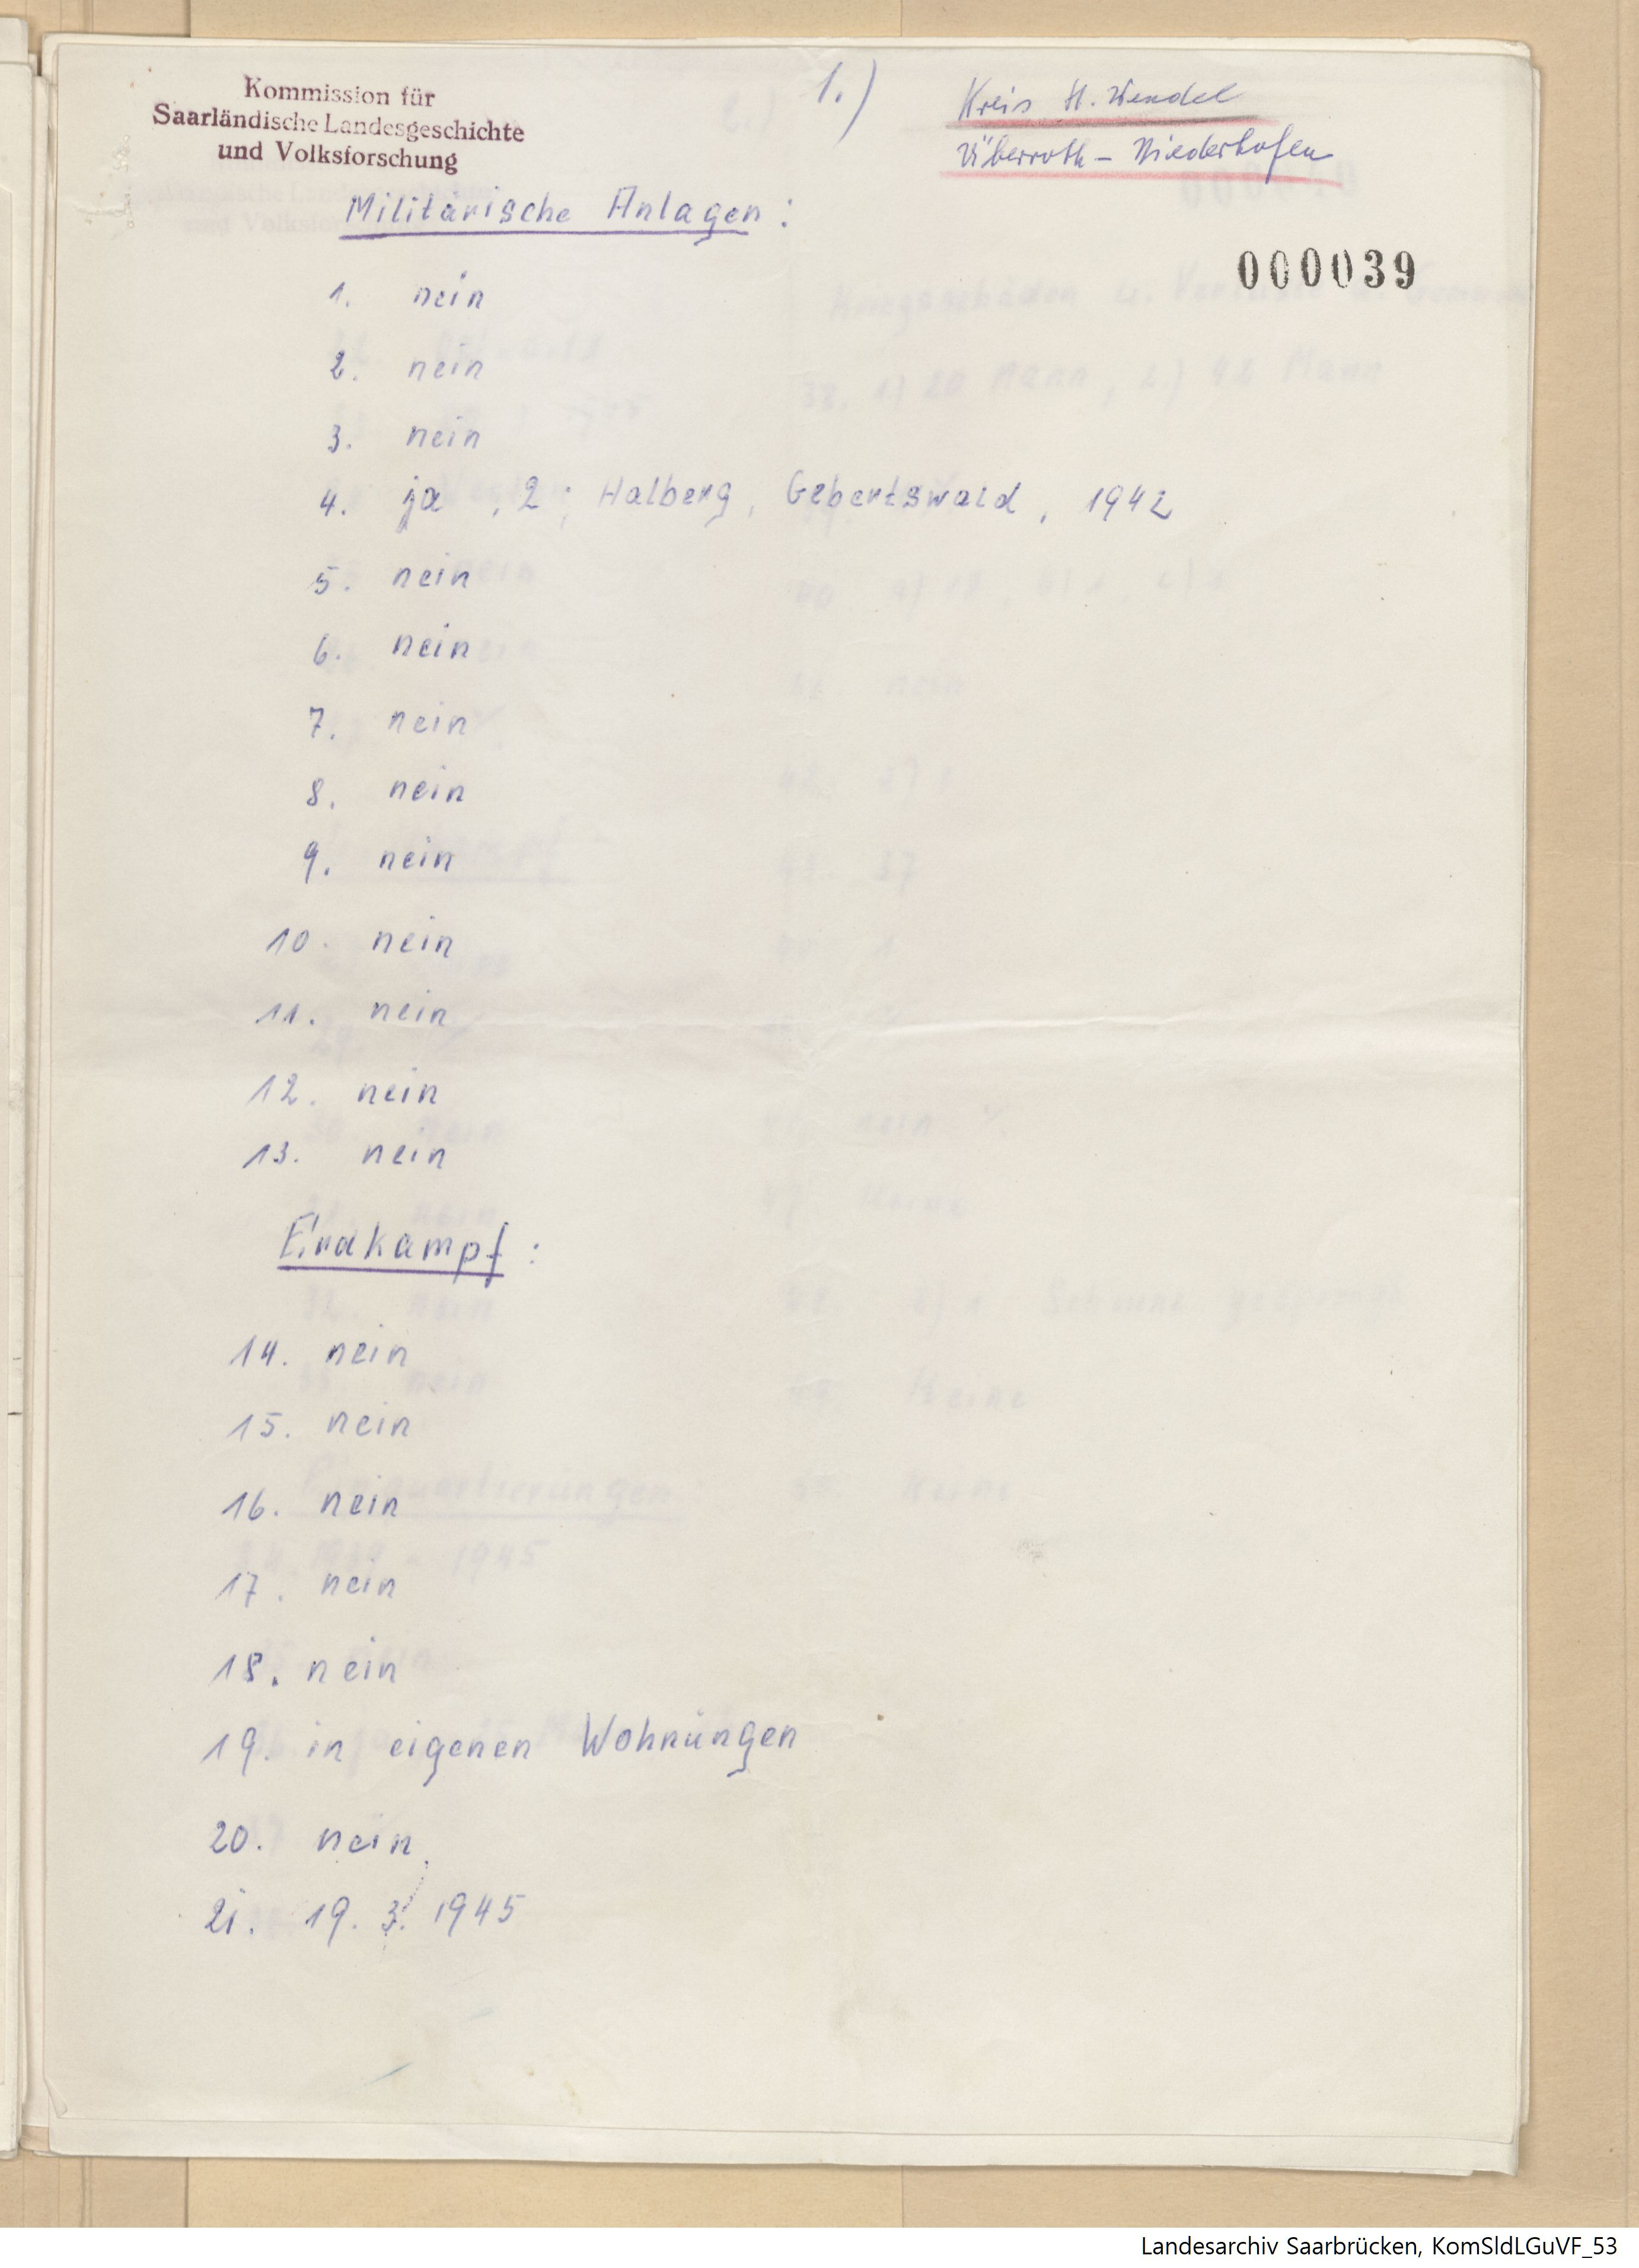 Kommission für
Saarländische Landesgeschichte
und Volksforschung
1.)
Kreis St. Wendel
Überroth - Niederhofen
Militärische Anlagen :
000039
1. nein
2. nein
3. nein
4. ja , 2 ; Halberg, Gebertswald , 1942
5. nein
6. nein
7. nein
8. nein
9. nein
10. nein
11. nein
12. nein
13. nein
Erdkampf :
14. nein
15. nein
16. nein
17. nein
18. nein
19. in eigenen Wohnungen
20. nein
21. 19. 3. 1945
Landesarchiv Saarbrücken, KomSldLGuVF_53